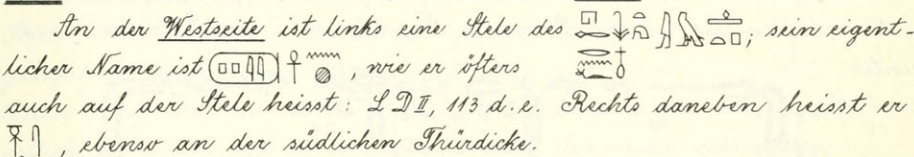 An der Westseite ist links eine Stele des ; sein eigent-
licher Name ist 𓍹𓊪𓊪𓇋𓇋𓍺𓋹𓈖𓐍, wie er öfters
auch auf der Stele heisst: L D II, 113 d. e. Rechts daneben heisst er
, ebenso an der südlichen Thürdicke.